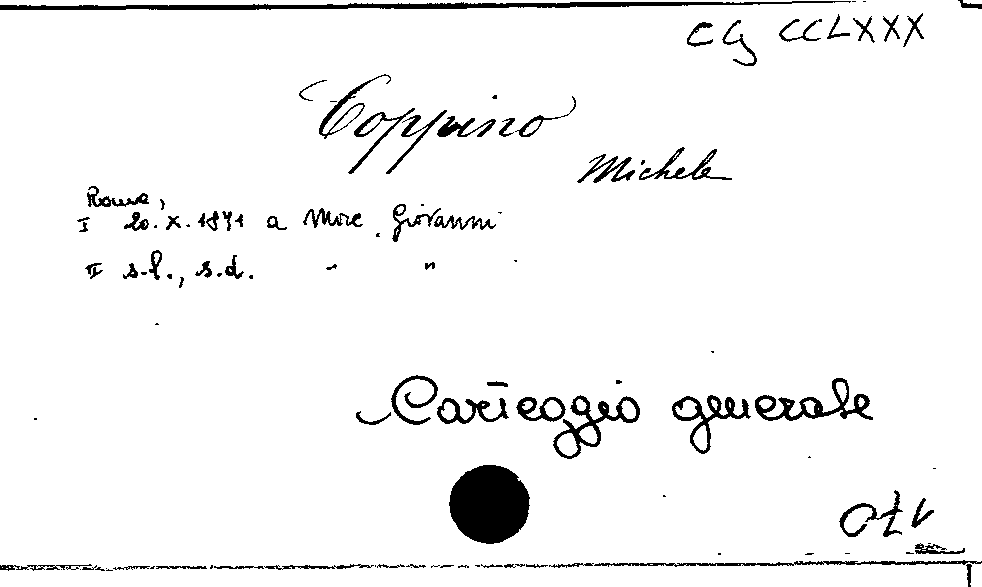 CG CCLXXX
Coppino
Michele
Roma,
I 20.X.1871 a More, Giovanni
II s.l., s.d. " "
Carteggio generale